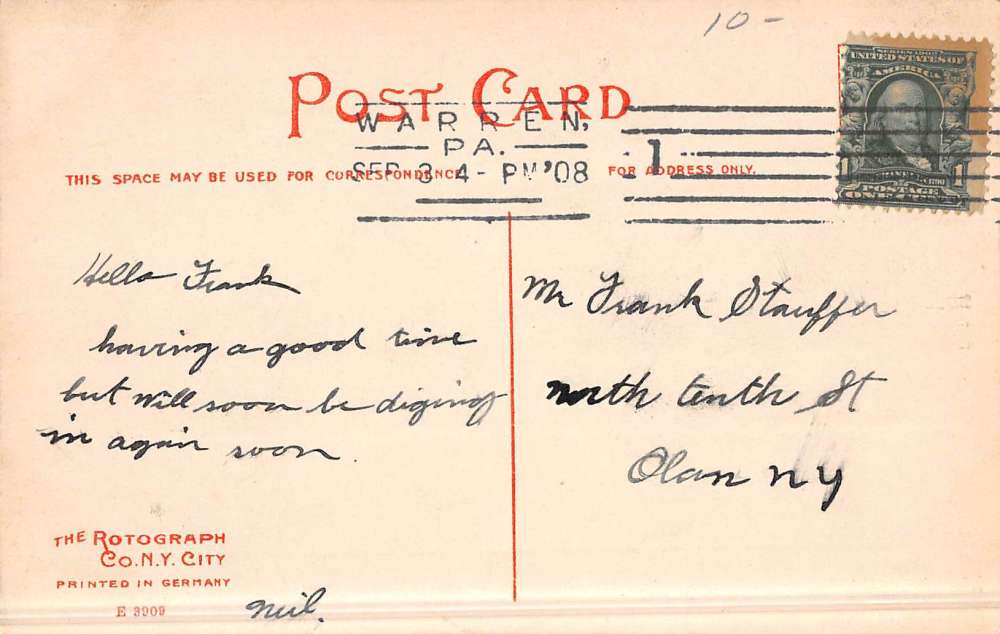 10-
POST CARD
WARREN,
PA.
SEP 3 4 - PM '08
1
THIS SPACE MAY BE USED FOR CORRESPONDENCE
FOR ADDRESS ONLY.
SERIES 1902
UNITED STATES OF
AMERICA
1 1
POSTAGE
ONE CENT
Hello Frank
having a good time
but will soon be diging
in again soon.
Neil.
Mr Frank Stauffer
north tenth St
Olean NY
THE ROTOGRAPH
CO. N.Y. CITY
PRINTED IN GERMANY
E 3909